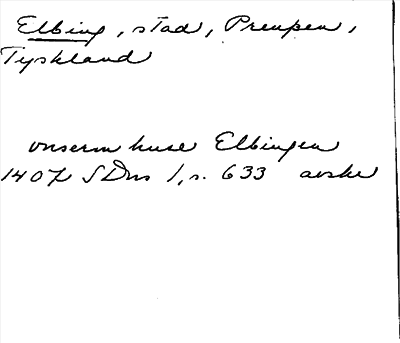 Elbing, stad, Preuβen,
Tyskland
vnserm huse Elbingen
1407 SDns 1, s. 633 avskr